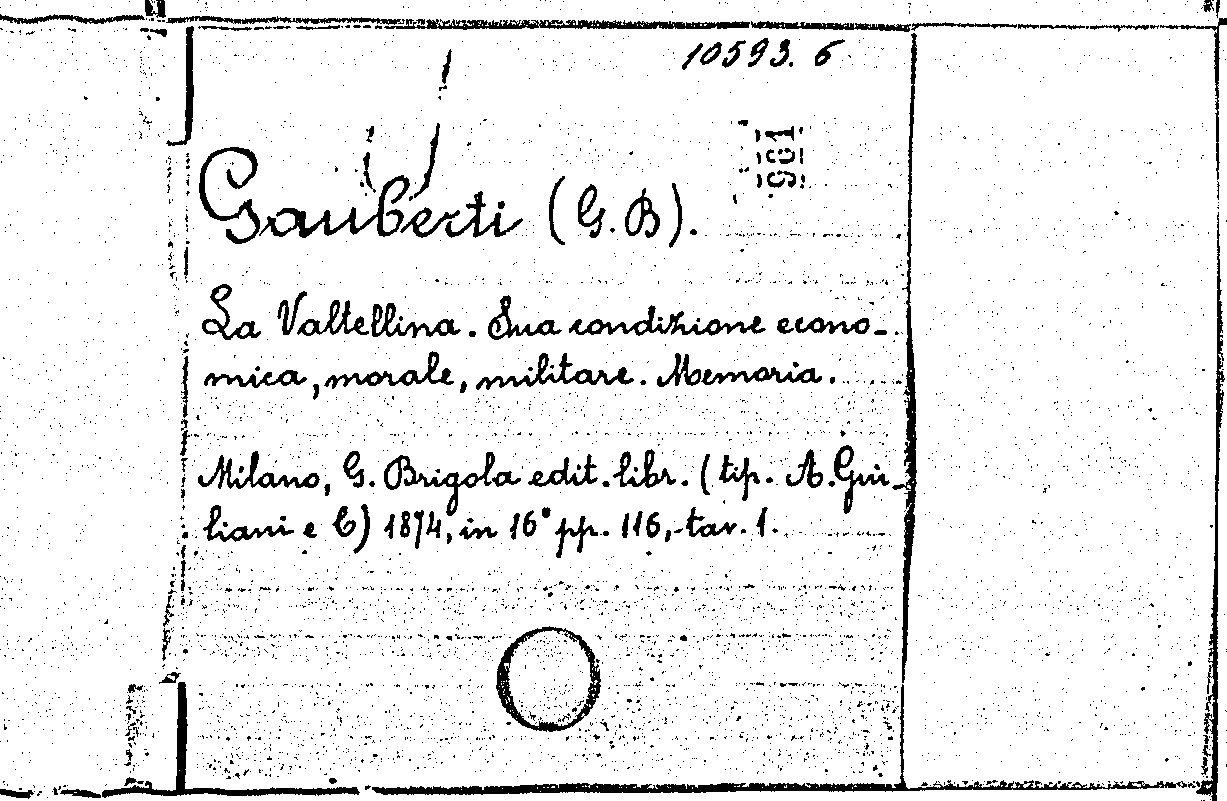 10593. 6
901
Gauberti (G. B).
La Valtellina. Sua condizione econo-
mica, morale, militare. Memoria.
Milano, G. Brigola edit. libr. (tip. A. Guir-
liani e C) 1874, in 16° pp. 116, tav. 1.